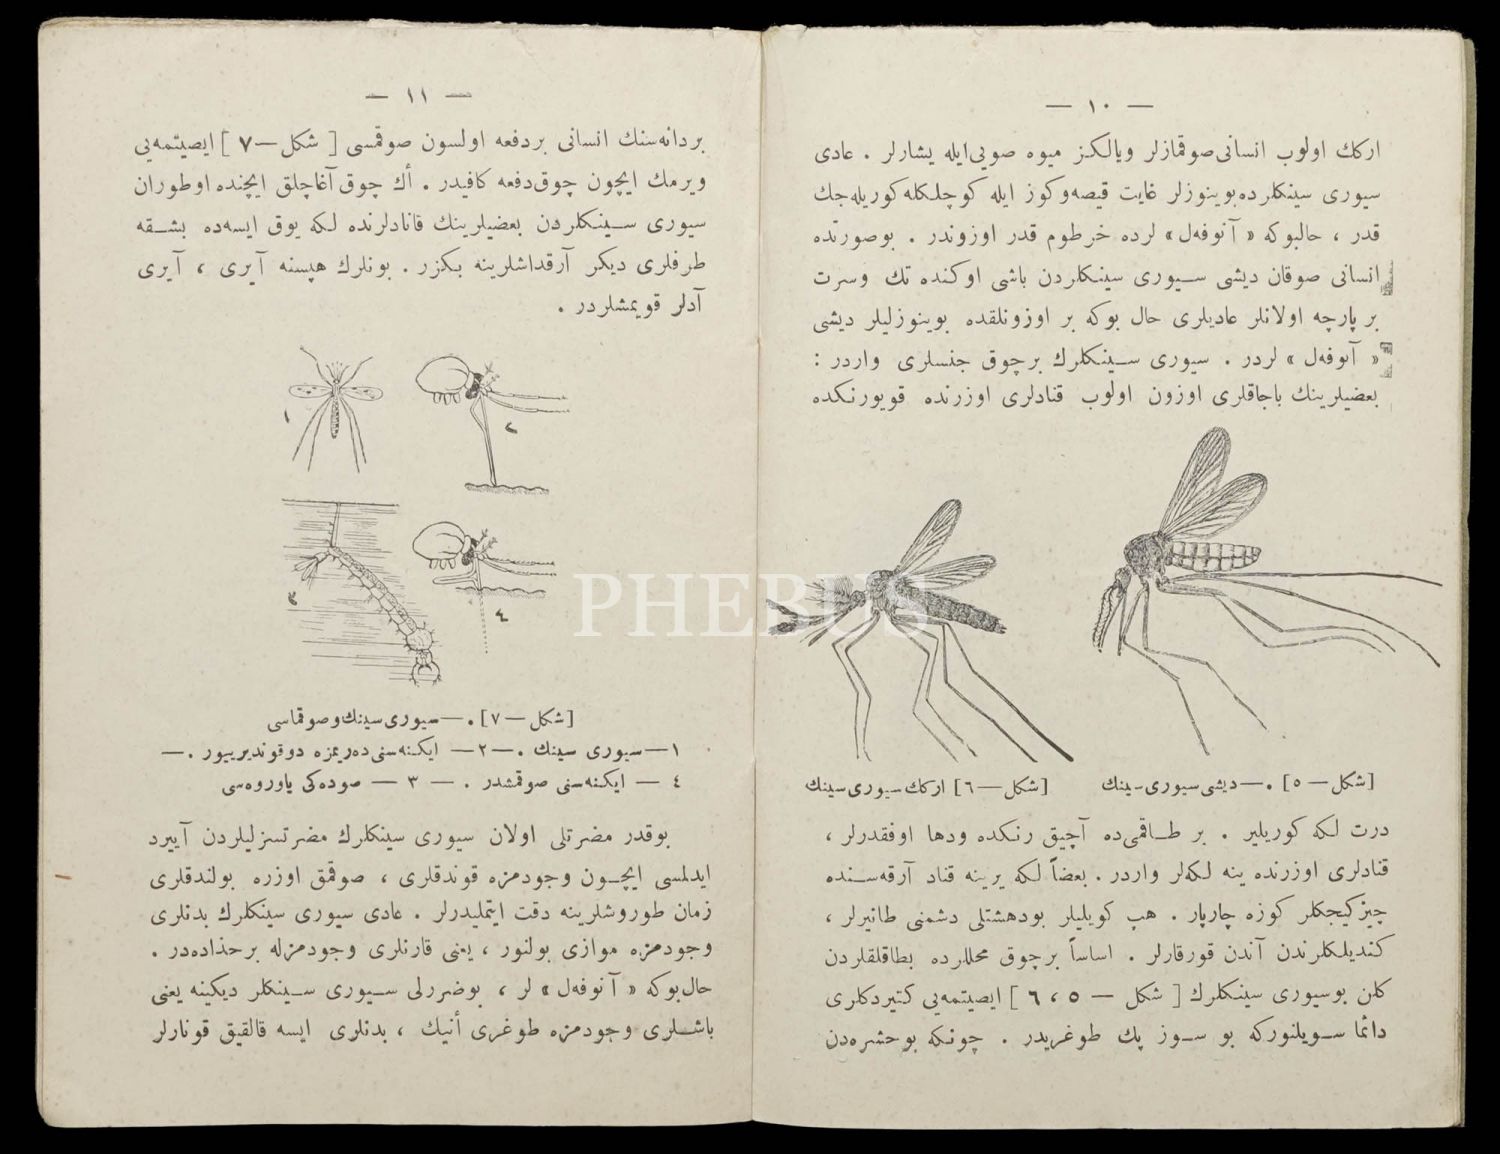 — ١٠ —
اركك اولوب انسانی صوقمازلر ویالكز میوه صویی ایله یشارلر . عادی
سیوری سینكلرده بوینوزلر غایت قیصه وكوز ایله كوچلكله كوریله جك
قدر ، حالبوكه « آنوفه ل » لرده خرطوم قدر اوزوندر . بوصورتده
انسانی صوقان دیشی سیوری سینكلردن باشی اوكنده تك وسرت
بر پارچه اولانلر عادیلری حال بوكه بر اوزونلقده بوینوزلیلر دیشی
« آنوفه ل » لردر . سیوری سینكلرك برچوق جنسلری واردر :
بعضیلرینك باجاقلری اوزون اولوب قنادلری اوزرنده قویورنكده
[شكل — ٥] .— دیشی سیوری سینك
[شكل — ٦] اركك سیوری سینك
درت لكه كوریلیر . بر طاقمی ده آچیق رنكده ودها اوفقدرلر ،
قنادلری اوزرنده ینه لكه لر واردر . بعضاً لكه یرینه قناد آرقه سنده
چیزكیجكلر كوزه چارپار . هپ كویلیلر بودهشتلی دشمنی طانیرلر ،
كندیلكلرندن آندن قورقارلر . اساساً برچوق محللرده بطاقلقلردن
كلن بوسیوری سینكلرك [ شكل — ٥ ، ٦ ] ایصیتمه یی كتیردكلری
دائما سویلنوركه بو سوز پك طوغریدر . چونكه بوحشره دن
— ١١ —
بردانه سنك انسانی بردفعه اولسون صوقمسی [ شكل — ٧ ] ایصیتمه یی
ویرمك ایچون چوق دفعه كافیدر . أك چوق آغاچلق ایچنده اوطوران
سیوری سینكلردن بعضیلرینك قانادلرنده لكه یوق ایسه ده بشقه
طرفلری دیكر آرقداشلرینه بكزر . بونلرك هپسنه آیری ، آیری
آدلر قویمشلردر .
١
٢
٣
٤
[شكل — ٧] .— سیوری سینك وصوقماسی
١— سیوری سینك .— ٢— ایكنه سنی ده ریمزه دوقوندیرییور .—
٤ — ایكنه سنی صوقمشدر . — ٣ — صوده كی یاوروه سی
بوقدر مضرتلی اولان سیوری سینكلرك مضرتسزلیلردن آییرد
ایدلمسی ایچون وجودمزه قوندقلری ، صوقمق اوزره بولندقلری
زمان طوروشلرینه دقت ایتملیدرلر . عادی سیوری سینكلرك بدنلری
وجودمزه موازی بولنور ، یعنی قارنلری وجودمزله برحذاده در .
حال بوكه « آنوفه ل » لر ، بوضررلی سیوری سینكلر دیكینه یعنی
باشلری وجودمزه طوغری أنیك ، بدنلری ایسه قالقیق قونارلر
PHEBUS